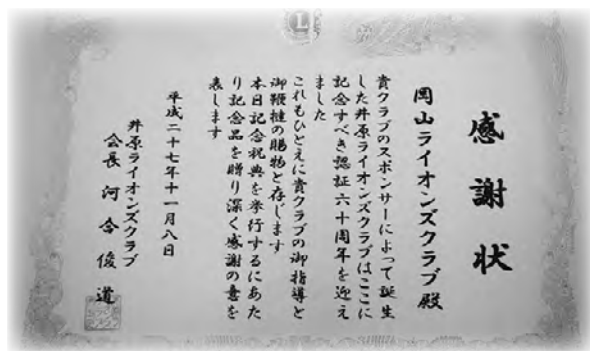 感謝状
岡山ライオンズクラブ殿
貴クラブのスポンサーによって誕生
した井原ライオンズクラブはここに
記念すべき認証六十周年を迎え
ました
これもひとえに貴クラブの御指導と
御鞭撻の賜物と存じます
本日記念祝典を挙行するにあた
り記念品を贈り深く感謝の意を
表します
平成二十七年十一月八日
井原ライオンズクラブ
会長 河合俊道
L